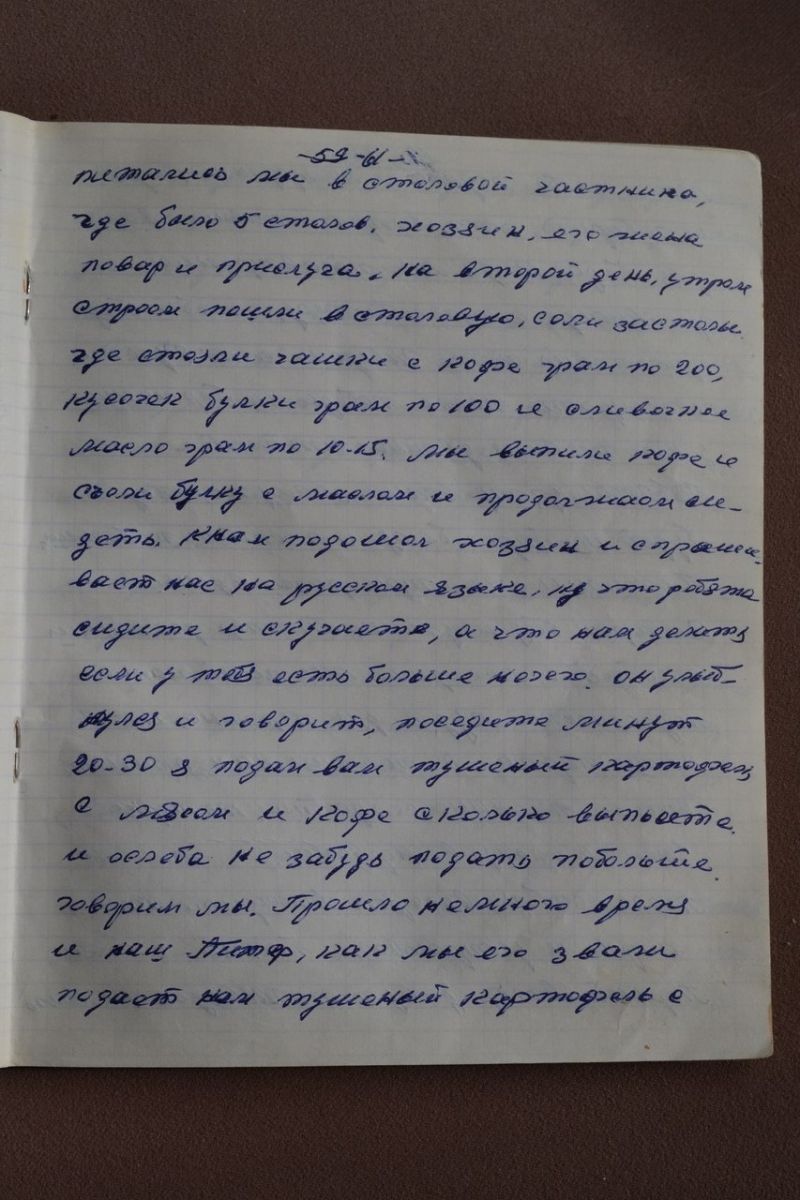 -59-
питались мы в столовой частника,
где было 5 столов. хозяин, его жена
повар и прислуга. На второй день, утром
строем пошли в столовую, сели застолы
где стояли чашки с кофе грам по 200,
кусочек булки грам по 100 и сливочное
масло грам по 10-15. Мы выпили кофе и
съели булку с маслом и продолжаем си-
деть. К нам подошол хозяин и спраши-
вает нас на русском языке, ну что робята
сидите и скучаете, а что нам делать
если у тебя есть больше нечего. он улыб-
нулся и говорит, поседите минут
20-30 я подам вам тушеный картофель
с мясом и кофе сколько выпьете.
и хлеба не забудь подать побольше
говорим мы. Прошло немного время
и наш Питер, как мы его звали
подает нам тушеный картофель с